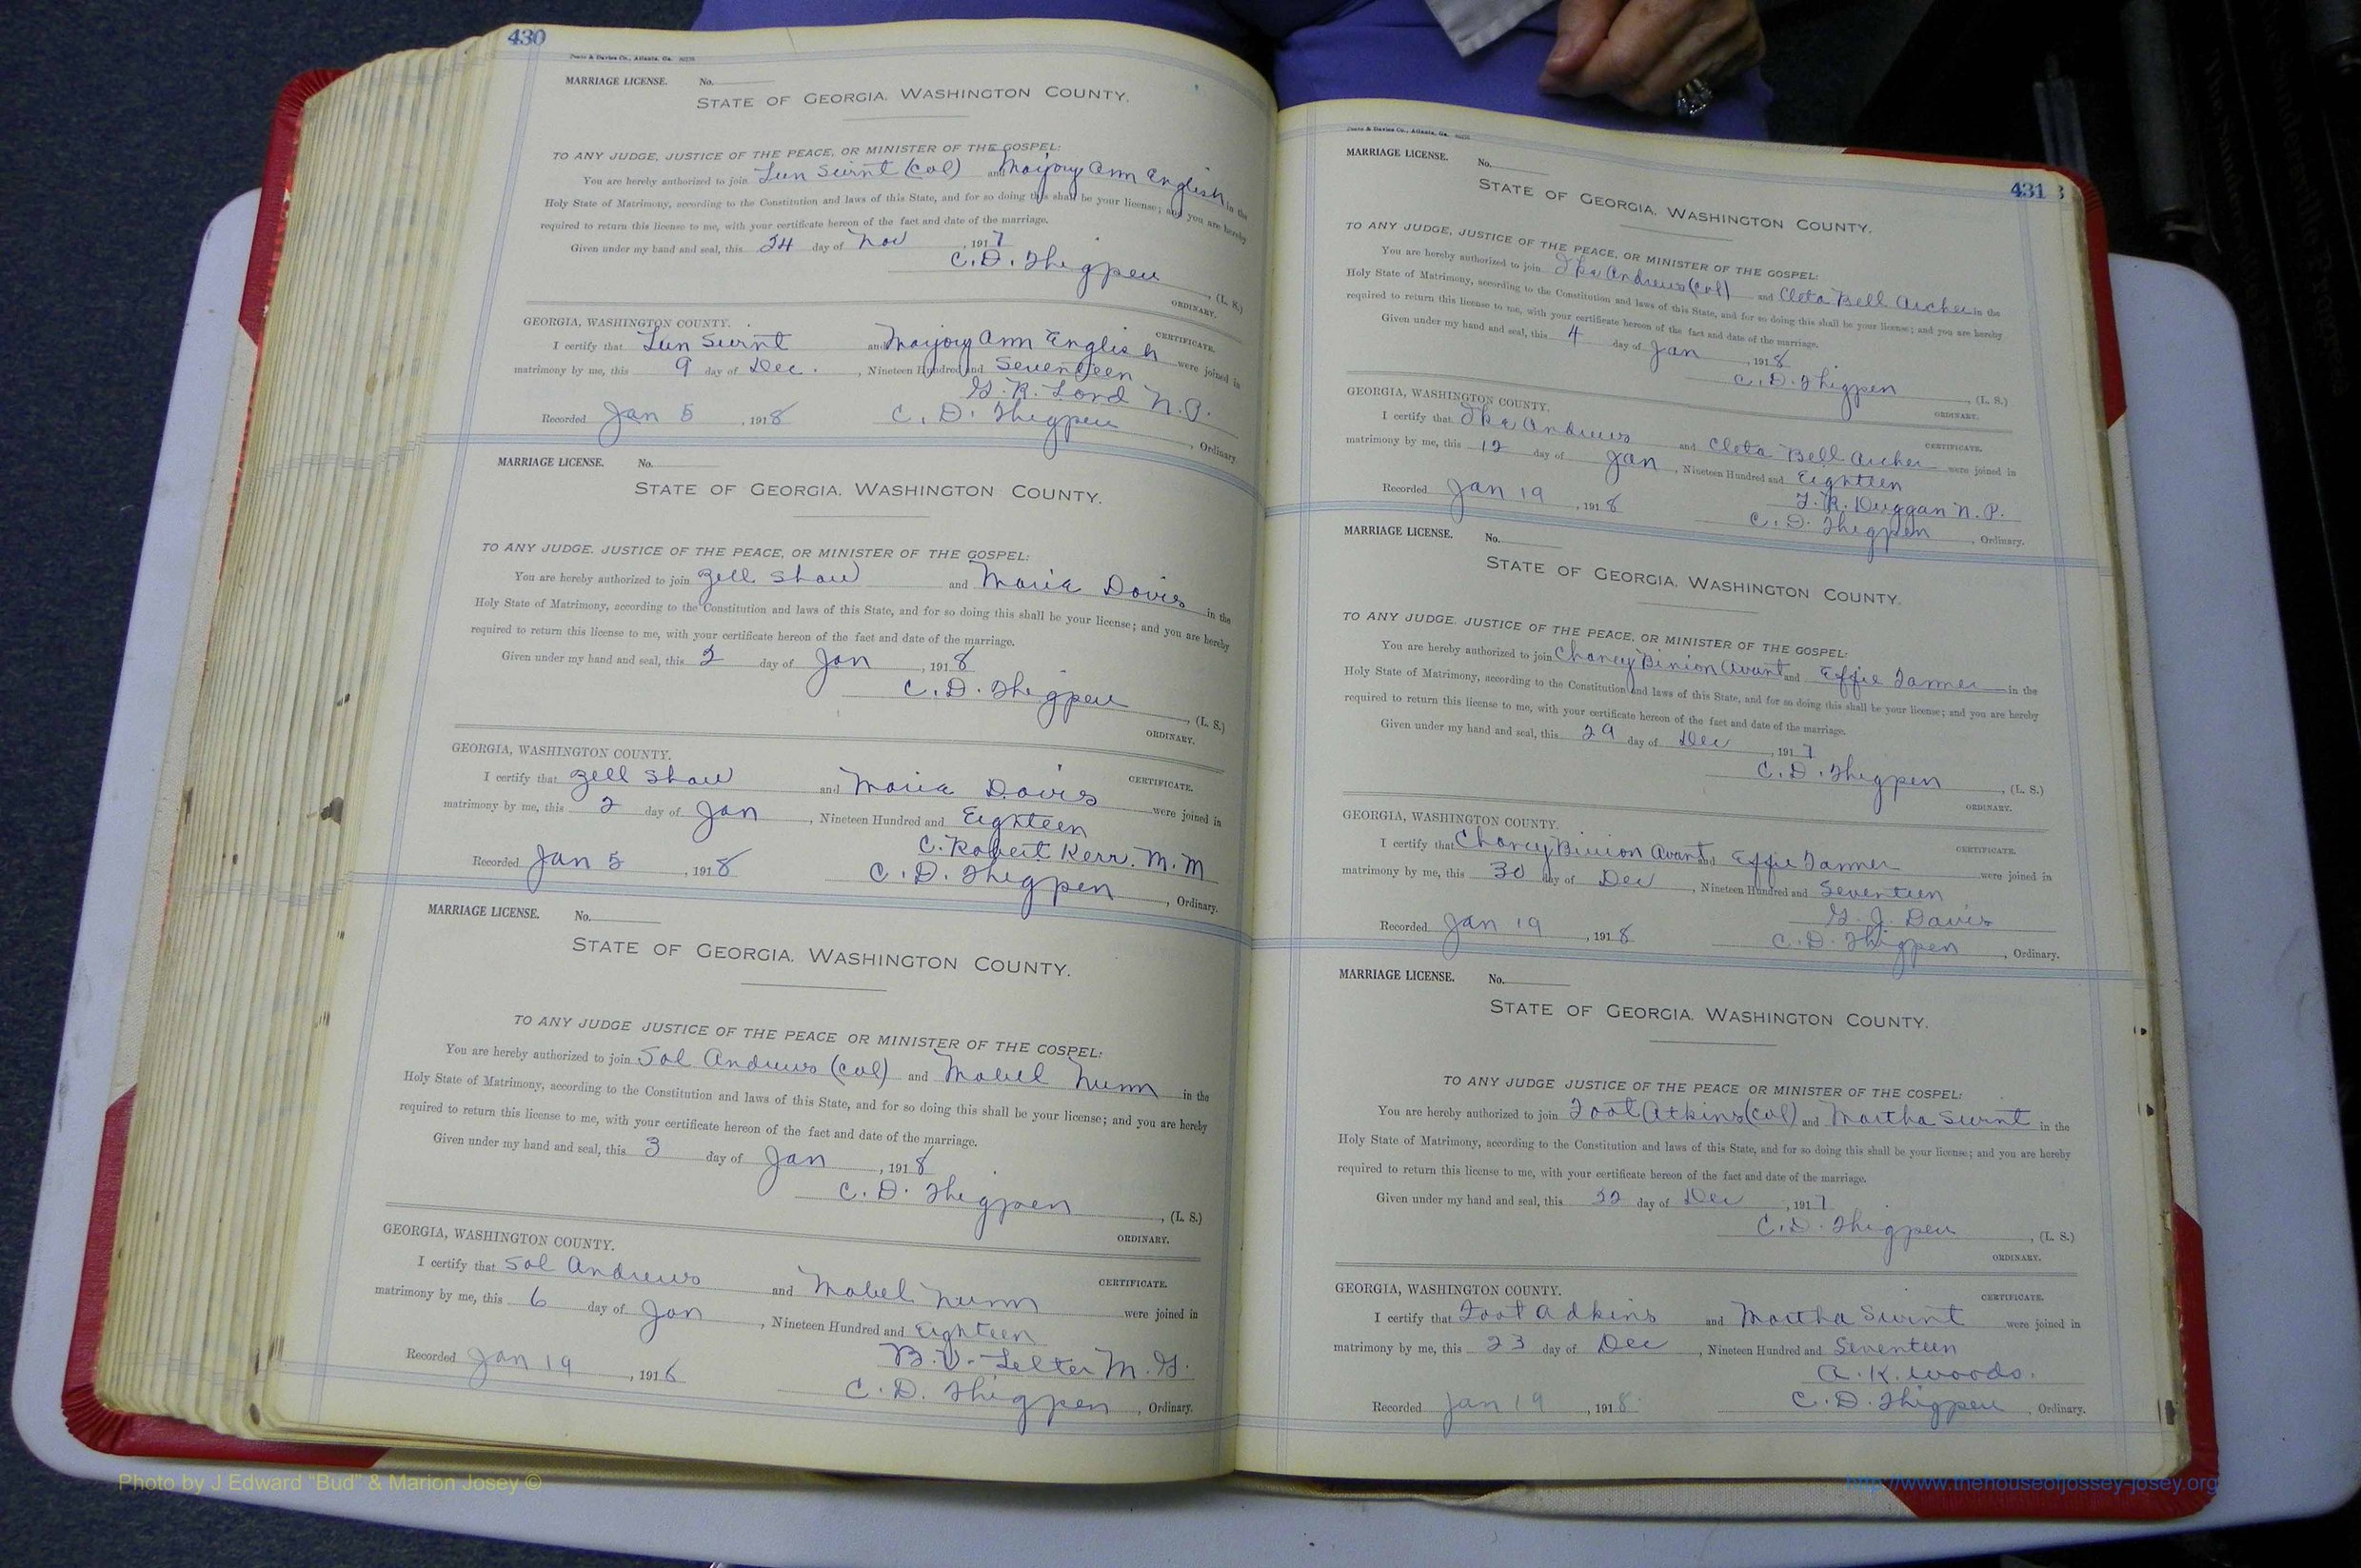 430
MARRIAGE LICENSE. No.
STATE OF GEORGIA, WASHINGTON COUNTY.
TO ANY JUDGE, JUSTICE OF THE PEACE, OR MINISTER OF THE GOSPEL:
You are hereby authorized to join Lun Surnt (col) and Marjory Ann English in the
Holy State of Matrimony, according to the Constitution and laws of this State, and for so doing this shall be your license; and you are hereby
required to return this license to me, with your certificate hereon of the fact and date of the marriage.
Given under my hand and seal, this 24 day of Nov, 1917
C. D. Thigpen, (L. S.)
ORDINARY.
GEORGIA, WASHINGTON COUNTY. CERTIFICATE.
I certify that Lun Surnt and Marjory Ann English were joined in
matrimony by me, this 9 day of Dec., Nineteen Hundred and Seventeen
G. R. Lord N. P.
Recorded Jan 5, 1918 C. D. Thigpen, Ordinary
MARRIAGE LICENSE. No.
STATE OF GEORGIA, WASHINGTON COUNTY.
TO ANY JUDGE, JUSTICE OF THE PEACE, OR MINISTER OF THE GOSPEL:
You are hereby authorized to join Zell Shaw and Maria Davis in the
Holy State of Matrimony, according to the Constitution and laws of this State, and for so doing this shall be your license; and you are hereby
required to return this license to me, with your certificate hereon of the fact and date of the marriage.
Given under my hand and seal, this 2 day of Jan, 1918
C. D. Thigpen, (L. S.)
ORDINARY.
GEORGIA, WASHINGTON COUNTY. CERTIFICATE.
I certify that Zell Shaw and Maria Davis were joined in
matrimony by me, this 2 day of Jan, Nineteen Hundred and Eighteen
C. Robert Kerr. M. M
Recorded Jan 5, 1918 C. D. Thigpen, Ordinary.
MARRIAGE LICENSE. No.
STATE OF GEORGIA, WASHINGTON COUNTY.
TO ANY JUDGE JUSTICE OF THE PEACE OR MINISTER OF THE GOSPEL:
You are hereby authorized to join Sol Andrews (col) and Mabel Nunn in the
Holy State of Matrimony, according to the Constitution and laws of this State, and for so doing this shall be your license; and you are hereby
required to return this license to me, with your certificate hereon of the fact and date of the marriage.
Given under my hand and seal, this 3 day of Jan, 1918
C. D. Thigpen, (L. S.)
ORDINARY.
GEORGIA, WASHINGTON COUNTY.
CERTIFICATE.
I certify that Sol Andrews and Mabel Nunn were joined in
matrimony by me, this 6 day of Jan, Nineteen Hundred and Eighteen
B. V. M. G.
Recorded Jan 19, 1918 C. D. Thigpen, Ordinary.
Photo by J Edward "Bud" & Marion Josey ©
431
MARRIAGE LICENSE. No.
STATE OF GEORGIA, WASHINGTON COUNTY.
TO ANY JUDGE, JUSTICE OF THE PEACE, OR MINISTER OF THE GOSPEL:
You are hereby authorized to join Ike Andrews (col) and Cleta Bell Archer in the
Holy State of Matrimony, according to the Constitution and laws of this State, and for so doing this shall be your license; and you are hereby
required to return this license to me, with your certificate hereon of the fact and date of the marriage.
Given under my hand and seal, this 4 day of Jan, 1918
C. D. Thigpen, (L. S.)
ORDINARY.
GEORGIA, WASHINGTON COUNTY. CERTIFICATE.
I certify that Ike Andrews and Cleta Bell Archer were joined in
matrimony by me, this 12 day of Jan, Nineteen Hundred and Eighteen
T. R. Duggan N. P.
Recorded Jan 19, 1918 C. D. Thigpen, Ordinary.
MARRIAGE LICENSE. No.
STATE OF GEORGIA, WASHINGTON COUNTY.
TO ANY JUDGE, JUSTICE OF THE PEACE, OR MINISTER OF THE GOSPEL:
You are hereby authorized to join Chancy Binion Avant and Effie Tanner in the
Holy State of Matrimony, according to the Constitution and laws of this State, and for so doing this shall be your license; and you are hereby
required to return this license to me, with your certificate hereon of the fact and date of the marriage.
Given under my hand and seal, this 29 day of Dec, 1917
C. D. Thigpen, (L. S.)
ORDINARY.
GEORGIA, WASHINGTON COUNTY. CERTIFICATE.
I certify that Chancy Binion Avant and Effie Tanner were joined in
matrimony by me, this 30 day of Dec, Nineteen Hundred and Seventeen
G. J. Davis
Recorded Jan 19, 1918 C. D. Thigpen, Ordinary.
MARRIAGE LICENSE. No.
STATE OF GEORGIA, WASHINGTON COUNTY.
TO ANY JUDGE JUSTICE OF THE PEACE OR MINISTER OF THE GOSPEL:
You are hereby authorized to join Toot Atkins (col) and Martha Surnt in the
Holy State of Matrimony, according to the Constitution and laws of this State, and for so doing this shall be your license; and you are hereby
required to return this license to me, with your certificate hereon of the fact and date of the marriage.
Given under my hand and seal, this 22 day of Dec, 1917
C. D. Thigpen, (L. S.)
ORDINARY.
GEORGIA, WASHINGTON COUNTY. CERTIFICATE.
I certify that Toot Adkins and Martha Surnt were joined in
matrimony by me, this 23 day of Dec, Nineteen Hundred and Seventeen
A. K. Woods.
Recorded Jan 19, 1918 C. D. Thigpen, Ordinary.
http://www.thehouseofjossey-josey.org